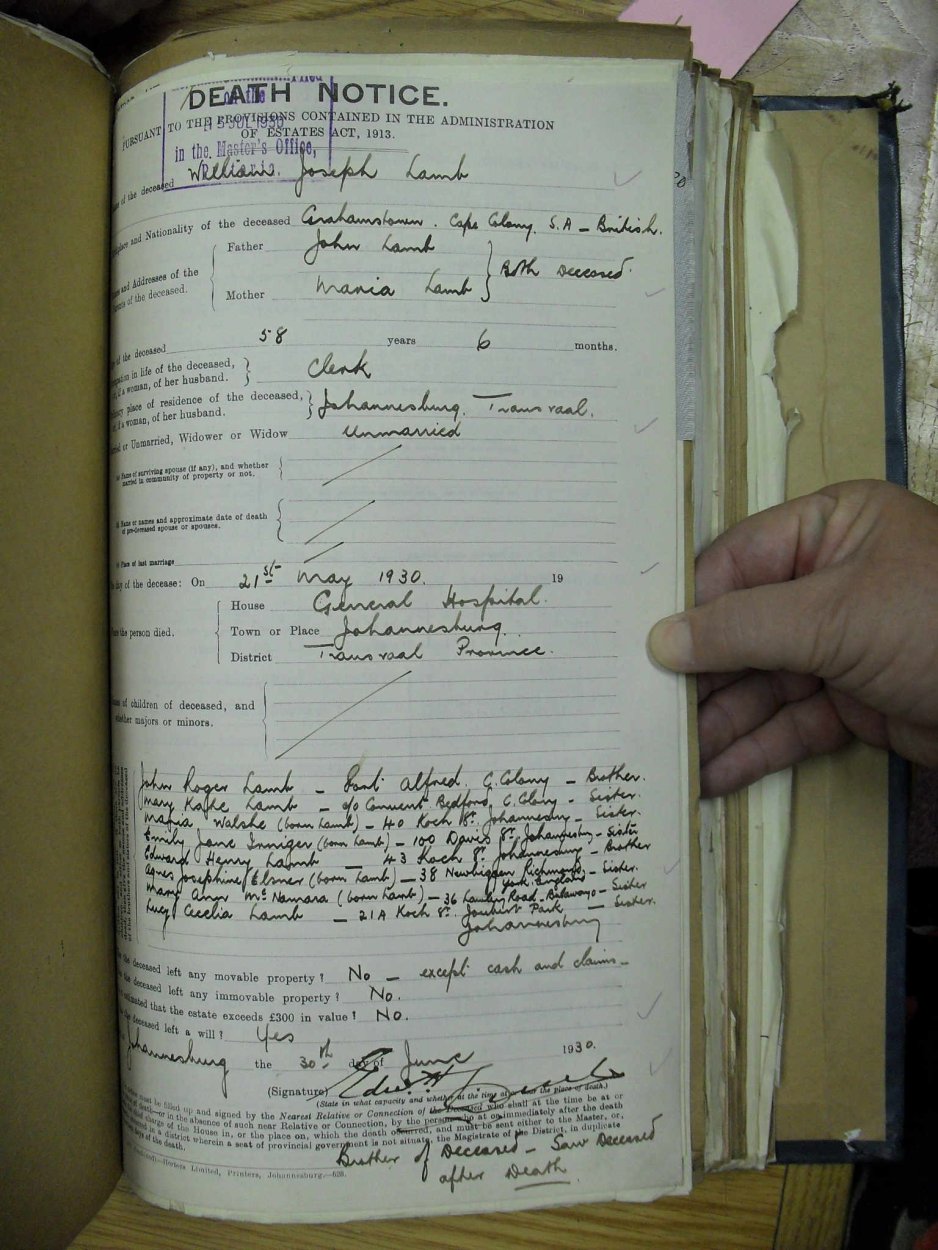 DEATH NOTICE.
on the
JUL 1930
in the Master's Office,
PURSUANT TO THE PROVISIONS CONTAINED IN THE ADMINISTRATION
OF ESTATES ACT, 1913.
of the deceased William Joseph Lamb
and Nationality of the deceased Grahamstown. Cape Colony. S.A - British.
and Addresses of the
of the deceased.
Father John Lamb
Both Deceased
Mother Maria Lamb
of the deceased 58 years 6 months.
in life of the deceased,
if a woman, of her husband. Clerk
place of residence of the deceased,
if a woman, of her husband. Johannesburg. Transvaal.
or Unmarried, Widower or Widow Unmarried
Name of surviving spouse (if any), and whether
married in community of property or not.
Name or names and approximate date of death
of pre-deceased spouse or spouses.
Place of last marriage
day of the decease: On 21st May 1930. 19
House General Hospital.
the person died. Town or Place Johannesburg.
District Transvaal Province.
of children of deceased, and
whether majors or minors.
John Roger Lamb - Port Alfred. C. Colony - Brother.
Mary Lamb - c/o Convent Bedford, C. Colony - Sister.
Maria Walshe (born Lamb) - 40 Koch St. Johannesburg - Sister.
Emily Jane (born Lamb) - 100 Davis St. Johannesburg - Sister
Edward Henry Lamb - 43 Koch St. Johannesburg - Brother
Agnes Josephine Elsner (born Lamb) - 38 Newbiggen Richmond, - Sister.
York. England
Mary Ann McNamara (born Lamb) - 36 Road - Bulawayo - Sister
Lucy Cecelia Lamb - 21A Koch St. Joubert Park - Sister.
Johannesburg
the deceased left any movable property? No - except cash and claims -
the deceased left any immovable property? No.
estimated that the estate exceeds £300 in value? No.
the deceased left a will? Yes
Johannesburg the 30th day of June 1930.
(Signature) Edwd. H. Lamb
(State in what capacity and whether at the time at or the place of death.)
must be filled up and signed by the Nearest Relative or Connection of the Deceased who shall at the time be at or
of death—or in the absence of such near Relative or Connection, by the person who at or immediately after the death
charge of the House in, or the place on, which the death occurred, and must be sent either to the Master, or,
in a district wherein a seat of provincial government is not situate, the Magistrate of the District, in duplicate
days of the death.
Brother of Deceased - Saw Deceased
after Death
Horters Limited, Printers, Johannesburg.